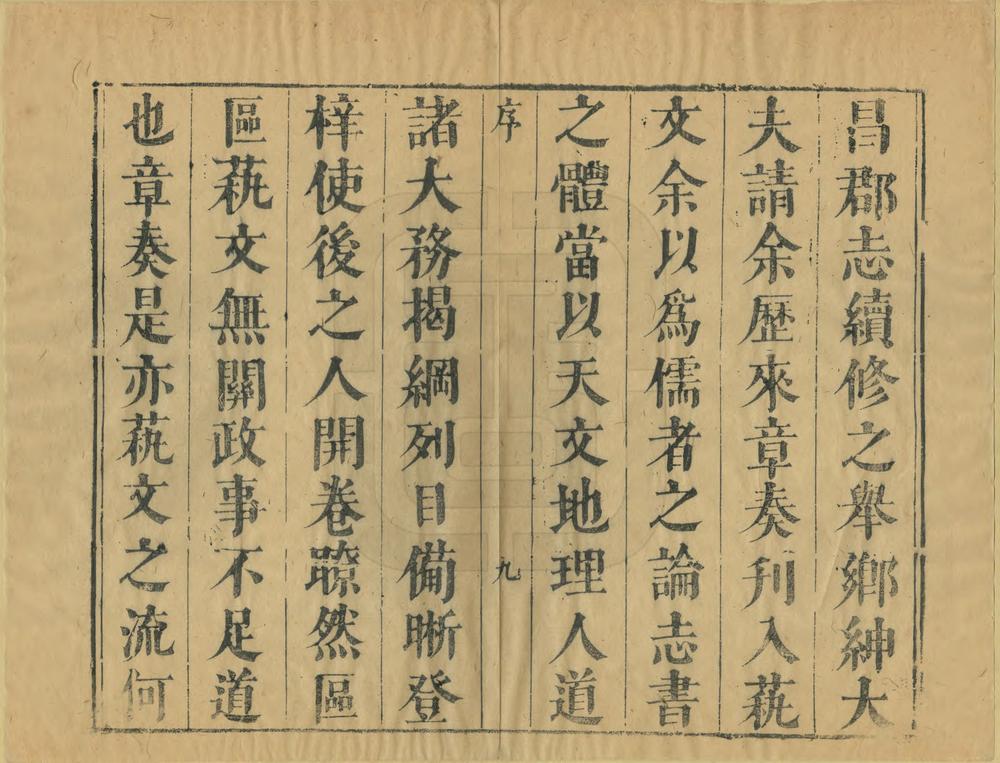 昌郡志續修之舉鄉紳大
夫請余歷來章奏刋入蓺
文余以爲儒者之論志書
之體當以天文地理人道
序 九
諸大務揭綱列目備晰登
梓使後之人開卷瞭然區
區蓺文無關政事不足道
也章奏是亦蓺文之流何